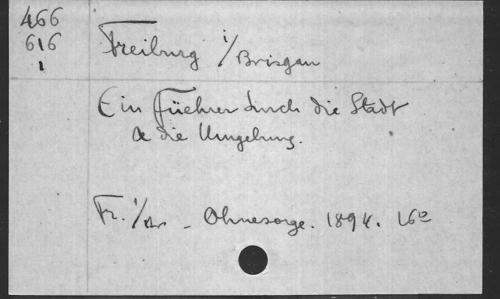 466
616
1
Freiburg i/Brisgau
Ein Füehrer durch die Stadt
& die Umgebung.
Fr. i/Br. - Ohnesorge. 1894. 16º